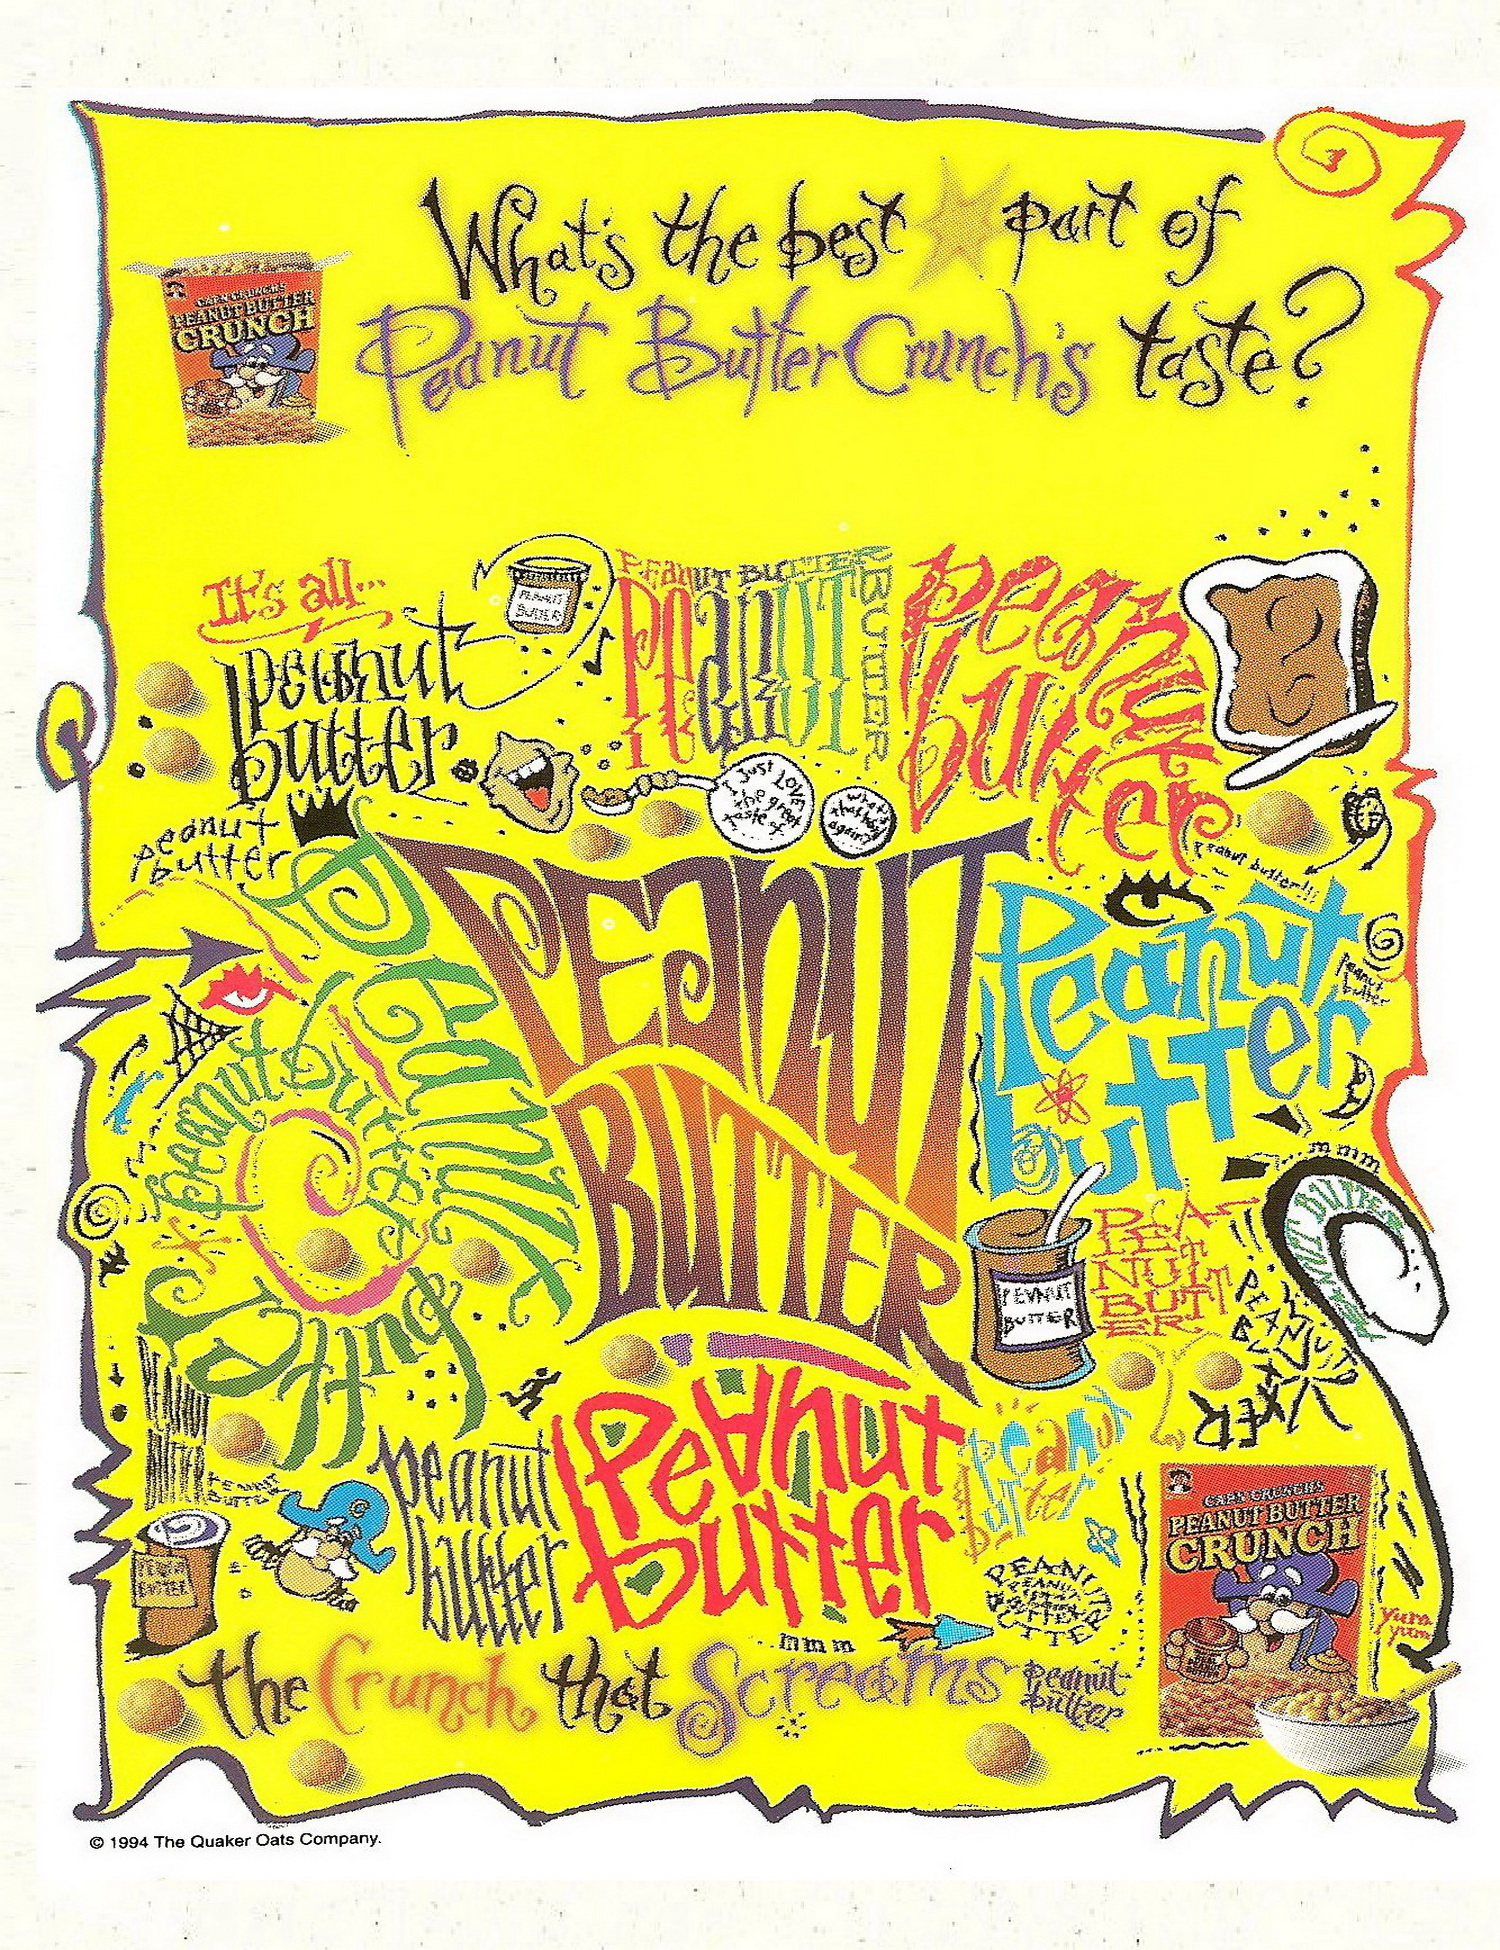 What's the best part of
Peanut Butter Crunch's taste?
CAP'N CRUNCH'S
PEANUT BUTTER
CRUNCH
It's all...
peanut
butter
PEANUT
BUTTER
PEANUT BUTTER
PEANUT
BUTTER
peanut
butter
I Just LOVE
the great
taste of
what's
that
again?
peanut
butter
peanut butter!!!
PEANUT
BUTTER
Peanut
butter
peanut
butter
peanut butter
Peanut
butter
mmm
PEANUT BUTTER
PEANUT
BUTTER
PEA
NUT
BUTT
ER
PEANUT
BUTTER
PEANUT
BUTTER
PEANUT
BUTTER
peanut
butter
Peanut
butter
peanut
butter
PEANUT
BUTTER
mmm
CAP'N CRUNCH'S
PEANUT BUTTER
CRUNCH
yum
yum
the Crunch that Screams peanut
butter
© 1994 The Quaker Oats Company.